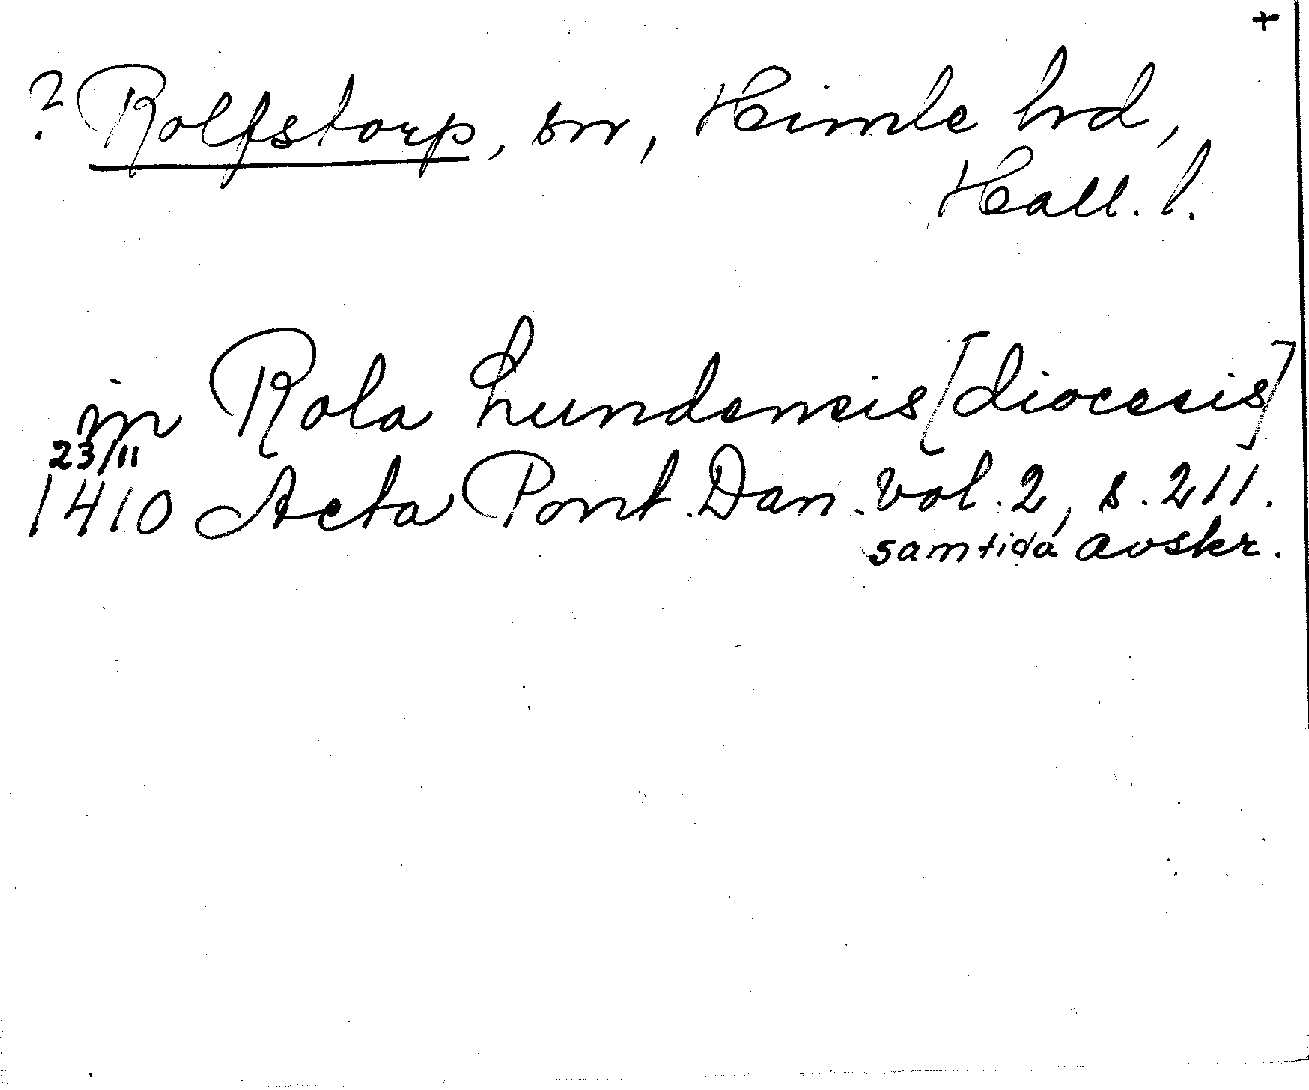 +
? Rolfstorp, sn, Himle hd,
Hall. l.
in Rola Lundensis [diocesis]
23/11
1410 Acta Pont. Dan. vol. 2, s. 211.
samtida avskr.